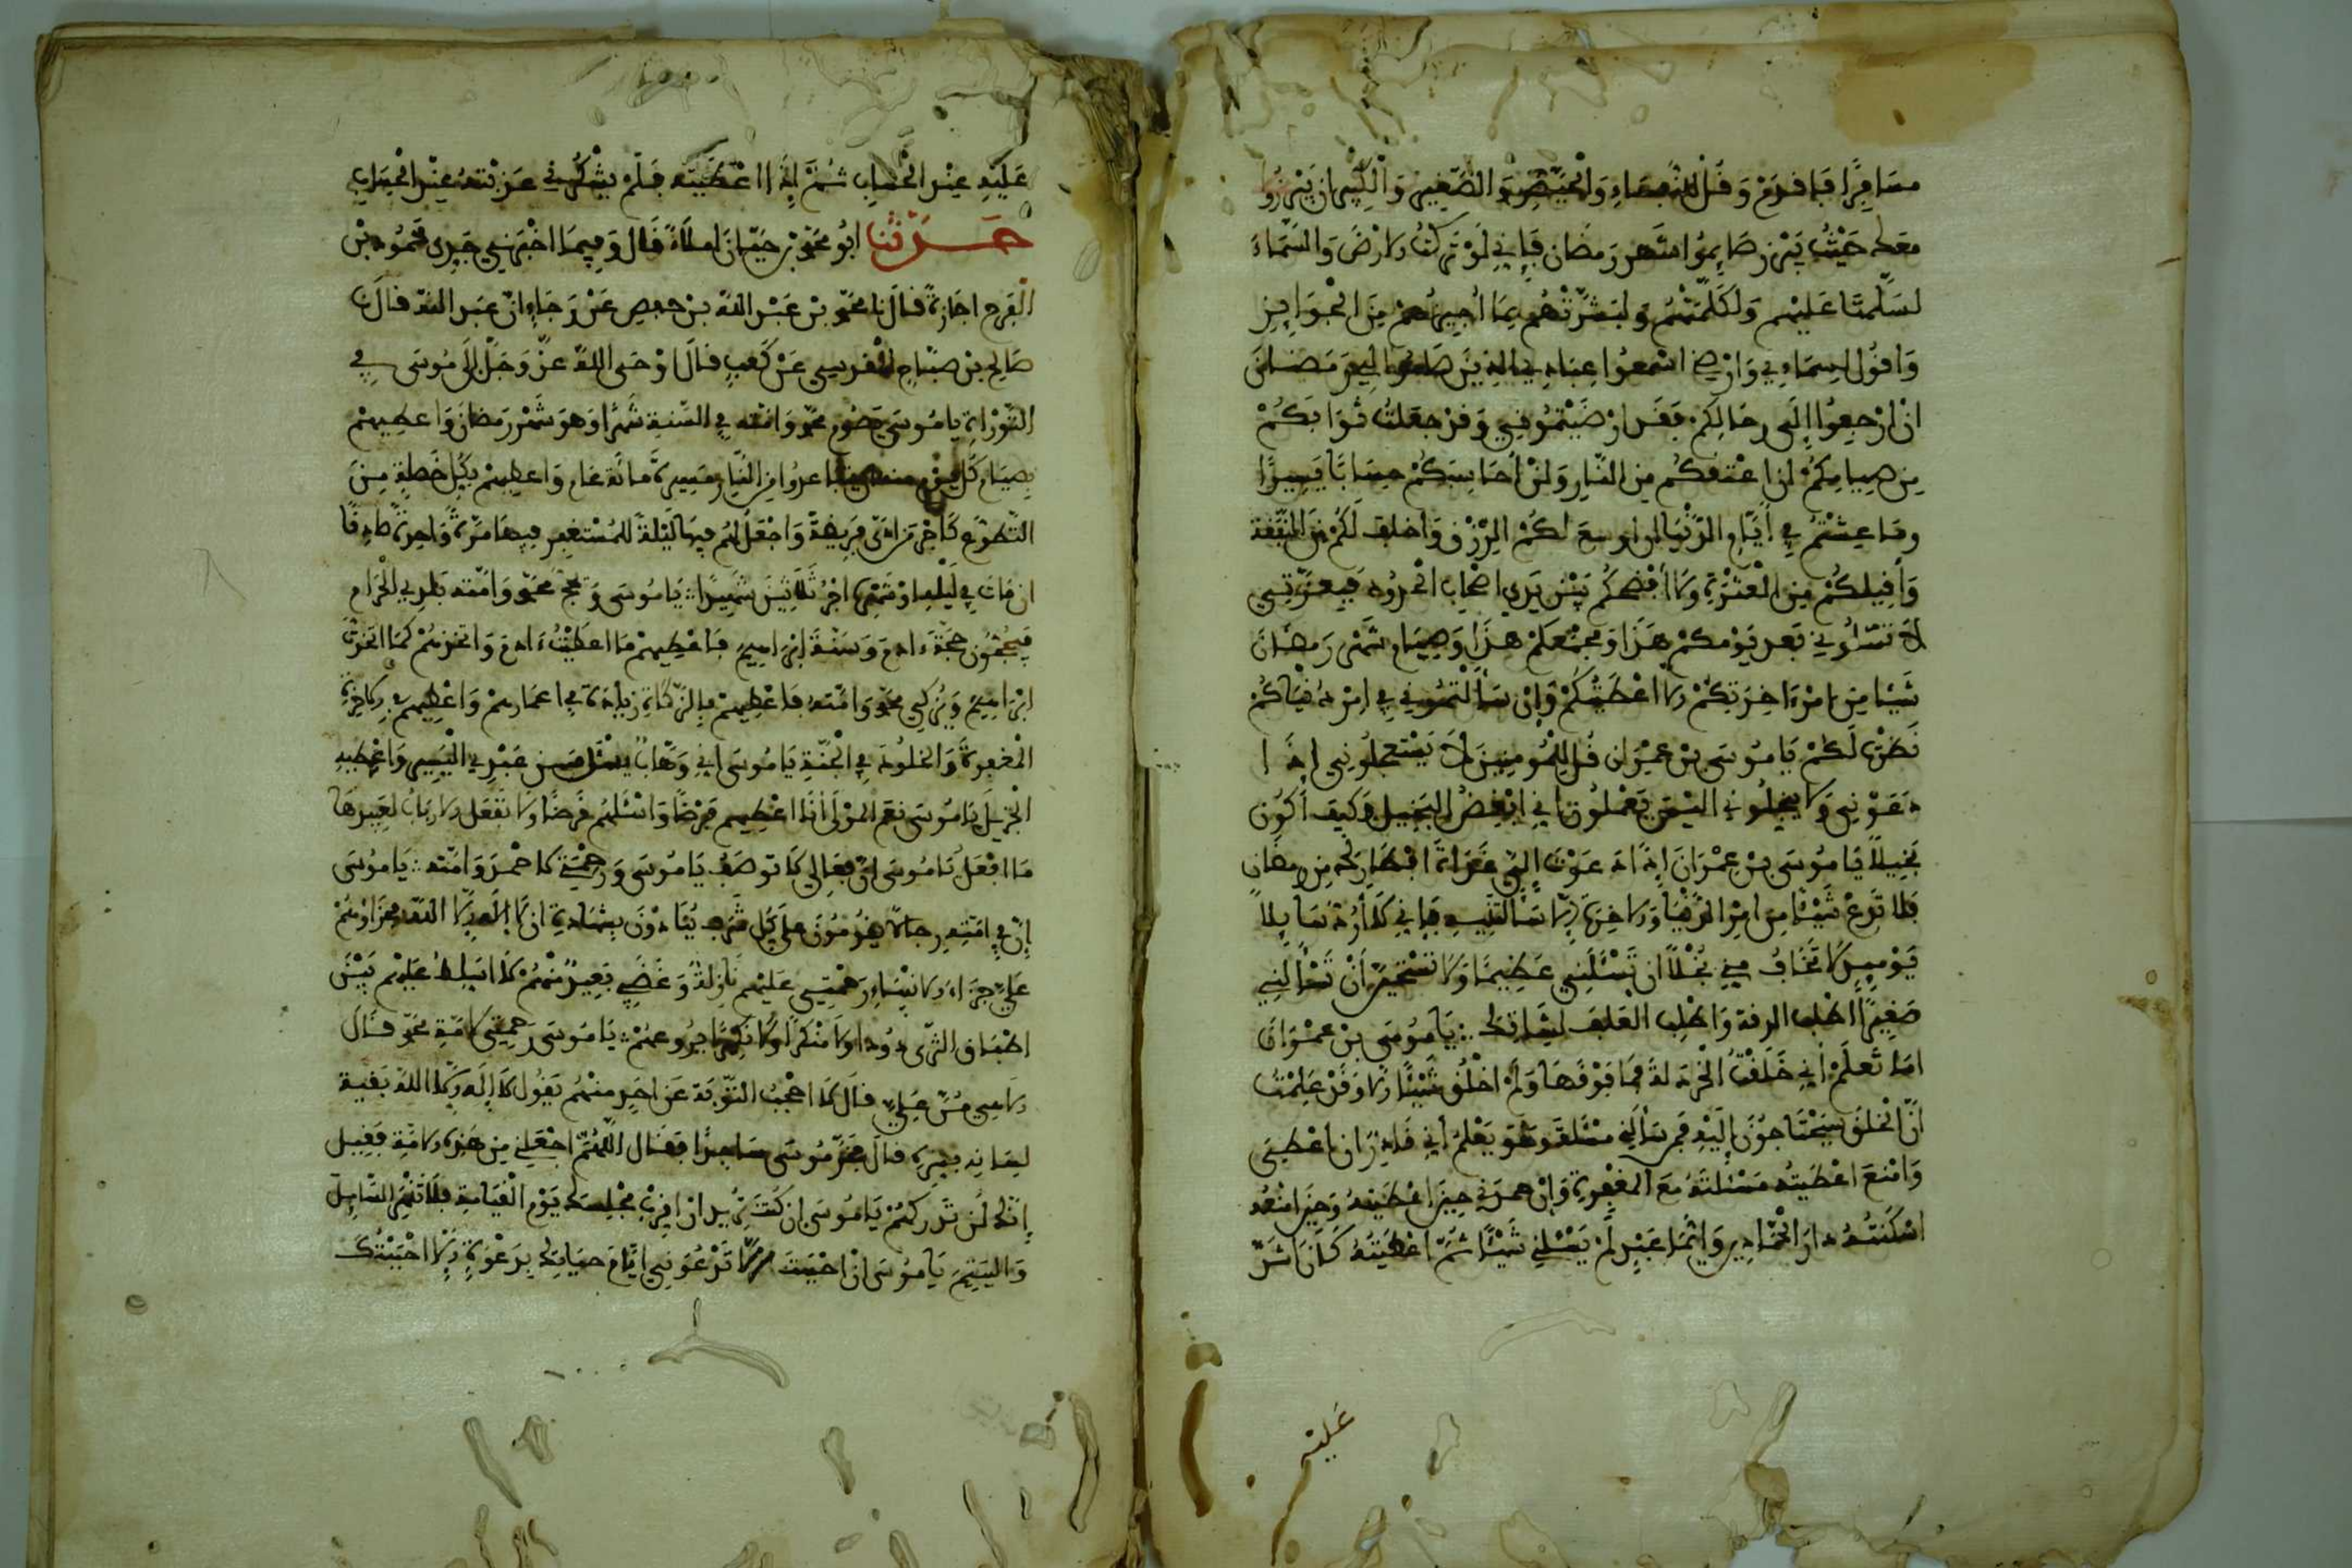 مسَافِرًا فَافدَمْ وَقُل للنُّفَسَاءِ وَالْحُيَّضِ وَالصَّغِيرِ وَالْكَبِيرِ ان يَبْرُزُوا
معك حَيْثُ يَبْرز صَايِموُا شهر رَمضَان فَإِنِّي لَوْ تَركتُ الارْضَ وَالسَّمَاءَ
لسَلَّمَتَا عَليْهِم وَلَكَلَّمَتْهُمْ وَلبَشَّرَتْهُم بِمَا أُجِيزُهُمْ مِنَ الْجَوَايِزِ
وَاقُولُ لِسمَاءِي وَارْضِي اسْمعوُا عِبَادِي الذِينَ صَامُوا لِي رَمَضَانَ
انْ ارْجِعُوا إِلَى رِحَالِكُمْ فَقَد ارْضَيْتُمُونِي وَقدْ جعَلتُ ثَوَابَكُمْ
مِن صِيامِكُمْ ان اعْتقكُم مِن النّارِ وَانْ أُحَاسِبَكُمْ حِسَابًا يَسِيرًا
ومَا عِشْتُمْ فِي أَيَّامِ الدُّنْيَا ان اوسعَ لكُمْ الرِّزْق وَاخلف لَكُمْ مِنَ النَّفَقَة
وَأقِيلكُمْ مِن الْعَثْرَةِ وَلا أَفْضحكُم بَيْن يَدَي اصْحَاب الْحُدُود فَبِعِزَّتِي
لا تسْألُونِي بَعد يَوْمكم هَذَا وَمجْمَعكُمْ هذَا وَصِيَام شَهْر رَمضَانَ
شَيْئا مِن امْرِ ءَاخِرَتِكُمْ الا اعْطَيْتكُمْ وَإِنْ سَأَلْتُمُونِي فِي امْرِ دُنْيَاكُمْ
نَظَرْتُ لَكُمْ يَا مُوسَى بْن عِمْرَان قُل لِلْمُومِنِينَ لا يَسْتعْجِلُونِي إِذَا
دَعَوْنِي وَلا يبخِّلُونِي اليْسَ يَعْلمُون انِّي ابْغِضُ البَخِيل فَكَيفَ أَكُون
بَخِيلًا يَا مُوسَى بْن عِمْرَانَ إِذَا دَعَوْتَ افْطَارِكَ مِن رمضَان
فَلا تَدعْ شَيْئا من امْرِ الدُّنْيَا وَالاخِرَةِ الا سَألتنِيهِ فَإِنِّي لا أَرُدُّ سَايِلًا
يَوْمَيِذٍ لا تَخَافُ مِنّي بُخْلًا ان تَسْئَلَنِي عَظِيمًا وَلا تسْتَحْي أَنْ تَسْأَلَنِي
صَغِيرًا اطْلب الدقة وَاطْلِب العَلَفَ لِشاتِكَ ؞ يَا مُوسَى بْن عمْرَانَ
امَا تَعلَمْ أَنِّي خَلَقْتُ الْخَرْدَلةَ فمَا فَوْقَهَا وَلَمْ اخْلُقْ شَيْئًا إلا وَقَدْ عَلِمْتُ
انَّ الْخلقَ سَيَحْتَاجُونَ إِلَيْهِ فَمن سَأَلَنِي مَسْئلةً وَهُوَ يَعْلمُ أَنِّي قَادِرٌ ان اعْطِيَ
وَامْنعَ اعْطَيْتهُ مَسْئلتَهُ معَ المَغْفِرَةِ وَإِنْ حمدَنِي حِينَ اعْطَيْتهُ وَحِينَ امْنَعُهُ
اسْكَنْتُهُ دارَ الْحَمَّادِين وَايُّمَا عَبْدٍ لَمْ يَسْئلنِي شَيْئًا ثُمَّ اعْطَيْتُهُ كَانَ اشَدَّ
عَليْهِ
عَلَيْهِ عِنْد الْحسَابِ ثُمَّ إِذَا اعْطَيْتهُ فَلَمْ يَشْكُرْنِي عَذبْتهُ عِنْدَ الْحِسَابِ
حَدَّثنا ابُو مُحَمَّد بْن حَيَّانَ امْلاَءً قَال وَفِيمَا اخْبَرَنِي جَدِي مَحْمُود بْن
الْفَرَج اجَازةً قال نا مُحَمَّد بْن عَبْد اللهِ بن حفص عَنْ رَجَاءِ ان عَبد الله قالَ نا
صَالِح بن صبَّاحٍ الْمَقدِسِي عَنْ كَعبٍ قالَ اوْحَى اللهُ عزَّ وَجَلَّ إِلَى مُوسَى فِي
التَّوْرَاةِ يا مُوسَى يَصُوم مُحَمَّد وَامّته فِي السَّنةِ شَهْرًا وَهوَ شَهْر رَمضَانَ وَاعطِيهمْ
بِصِيَامِ كُلّ يَوْمٍ منه ان يتباعدُوا من النَّارِ مَسِيرةَ مائَة عَام وَاعطِيهمْ بِكُلِّ خَصْلةٍ مِنَ
التّطَوُّعِ كَأَجْرِ مَن ادَّى فَرِيضةً وَاجْعَلُ لَهُم فِيهَا لَيْلَةً للمُسْتغفِر فِيهَا مَرّةً وَاحِدَةً صَادِقًا
ان مَاتَ فِي لَيْلهِ اوْ شَهْرهِ اجْرُ ثَلاثِينَ شَهِيدًا ؞ يَا مُوسَى وَيحجّ مُحَمّد وَامّته بَلدِي الْحَرَام
فَيَحُجُّونَ حَجّةَ ءَادمَ وَسنّةَ إِبْرَاهِيمَ فَاعْطِيهمْ مَا اعطَيْتُ ءَادمَ وَاتخذهُمْ كَمَا اتخذْتُ
ابْرَاهِيمَ وَيُزَكِّي مُحَمَّد وَامّتهُ فَاعْطِيهمْ بِالزّكَاةِ زِيَادَةً فِي اعمَارِهمْ وَاعْطِيهمْ فِي الاخِرَةِ
الْمَغفِرَةَ وَالخلُودَ فِي الْجنَّةِ يَا مُوسَى انِّي وَهَّابٌ عَبْدِي الْيَسِير وَاعْطِيهِ
الْجزيلَ يَا مُوسَى نعمَ المَوْلَى أَنَا اعْطِيهم قَرْضًا وَاسْئَلهُم قَرضًا وَلا تَفْعَل الارْبَابُ لعَبِيدِهَا
مَا افْعَلُ يَا مُوسَى انّ فِعَالِي لا توصَف يَا مُوسَى وَرحْمَتِي لاحْمَدَ وَامّتهِ ؞ يَا مُوسَى
إِنّ فِي امّتهِ رِجَالا يقُومُونَ علَى كُلّ شَرفٍ يُنَادُونَ بِشهَادةِ ان لا إِلَهَ إِلا اللهُ فَجَزَاؤهُمْ
عَلَيّ جَزَاءُ الانْبِيَاءِ رَحْمَتِي عَلَيْهِم نَازِلةٌ وَغَضَبِي بَعِيدٌ مِنْهُمْ لا اسَلِّطُ عَلَيْهم بَيْنَ
اطْبَاق الثّرَى دُودًا وَلاَ مُنْكَرًا وَلا نَكِيرًا يَا مُوسَى رَحمتي لأمّةِ مُحَمَّد قالَ
الاهِي مُنّ عَليّ قالَ لا احْجبُ التّوْبَةَ عَن احَدٍ مِنْهُم يَقُول لا إِلَهَ إِلا اللهُ بقيةَ
قالَ فَخَرَّ مُوسَى سَاجِدًا فقَال اللَّهُمَّ اجْعَلْنِي مِن هَذِه الأمَّةِ فَقِيل
إِنّكَ لَنْ تُدْرِكهُمْ يَا مُوسَى ان كُنْتَ تُرِيد انْ اقرِبَ مَجْلِسكَ يَوْم الْقِيَامَةِ فَلا تَنْهرِ السَّايِلَ
وَاليَتِيمَ يَا مُوسَى انْ احْبَبْتَ الا تَدْعُوَنِي ايّامَ حيَاتِكَ بِدَعْوَةٍ إِلا اجَبْتُكَ